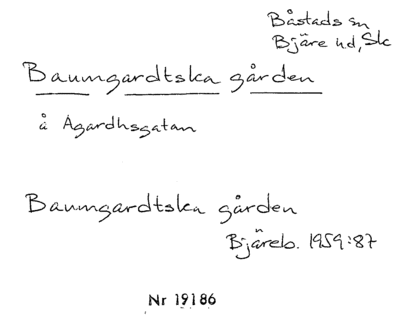 Båstads sn
Bjäre hd, Sk
Baumgardtska gården
å Agardhsgatan
Baumgardtska gården
Bjäreb. 1959:87
Nr 19186